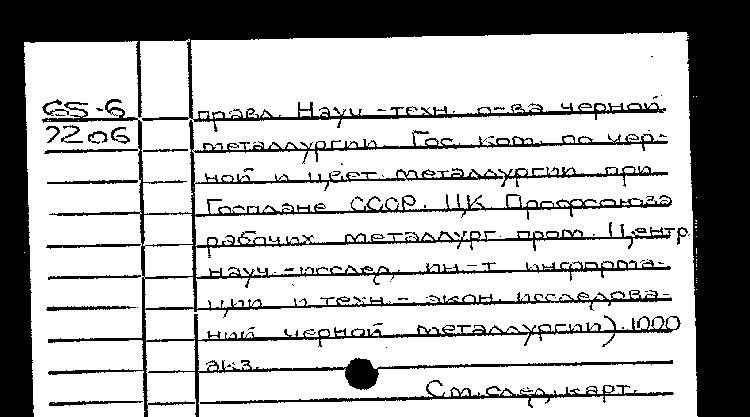 65-6
7206
правл. Науч.-техн. о-ва черной
металлургии. Гос. ком. по чер-
ной и цвет. металлургии при
Госплане СССР. ЦК Профсоюза
рабочих металлург. пром. Центр.
науч.-исслед. ин-т информа-
ции и техн.-экон. исследова-
ний черной металлургии). 1000
экз.
См. след. карт.